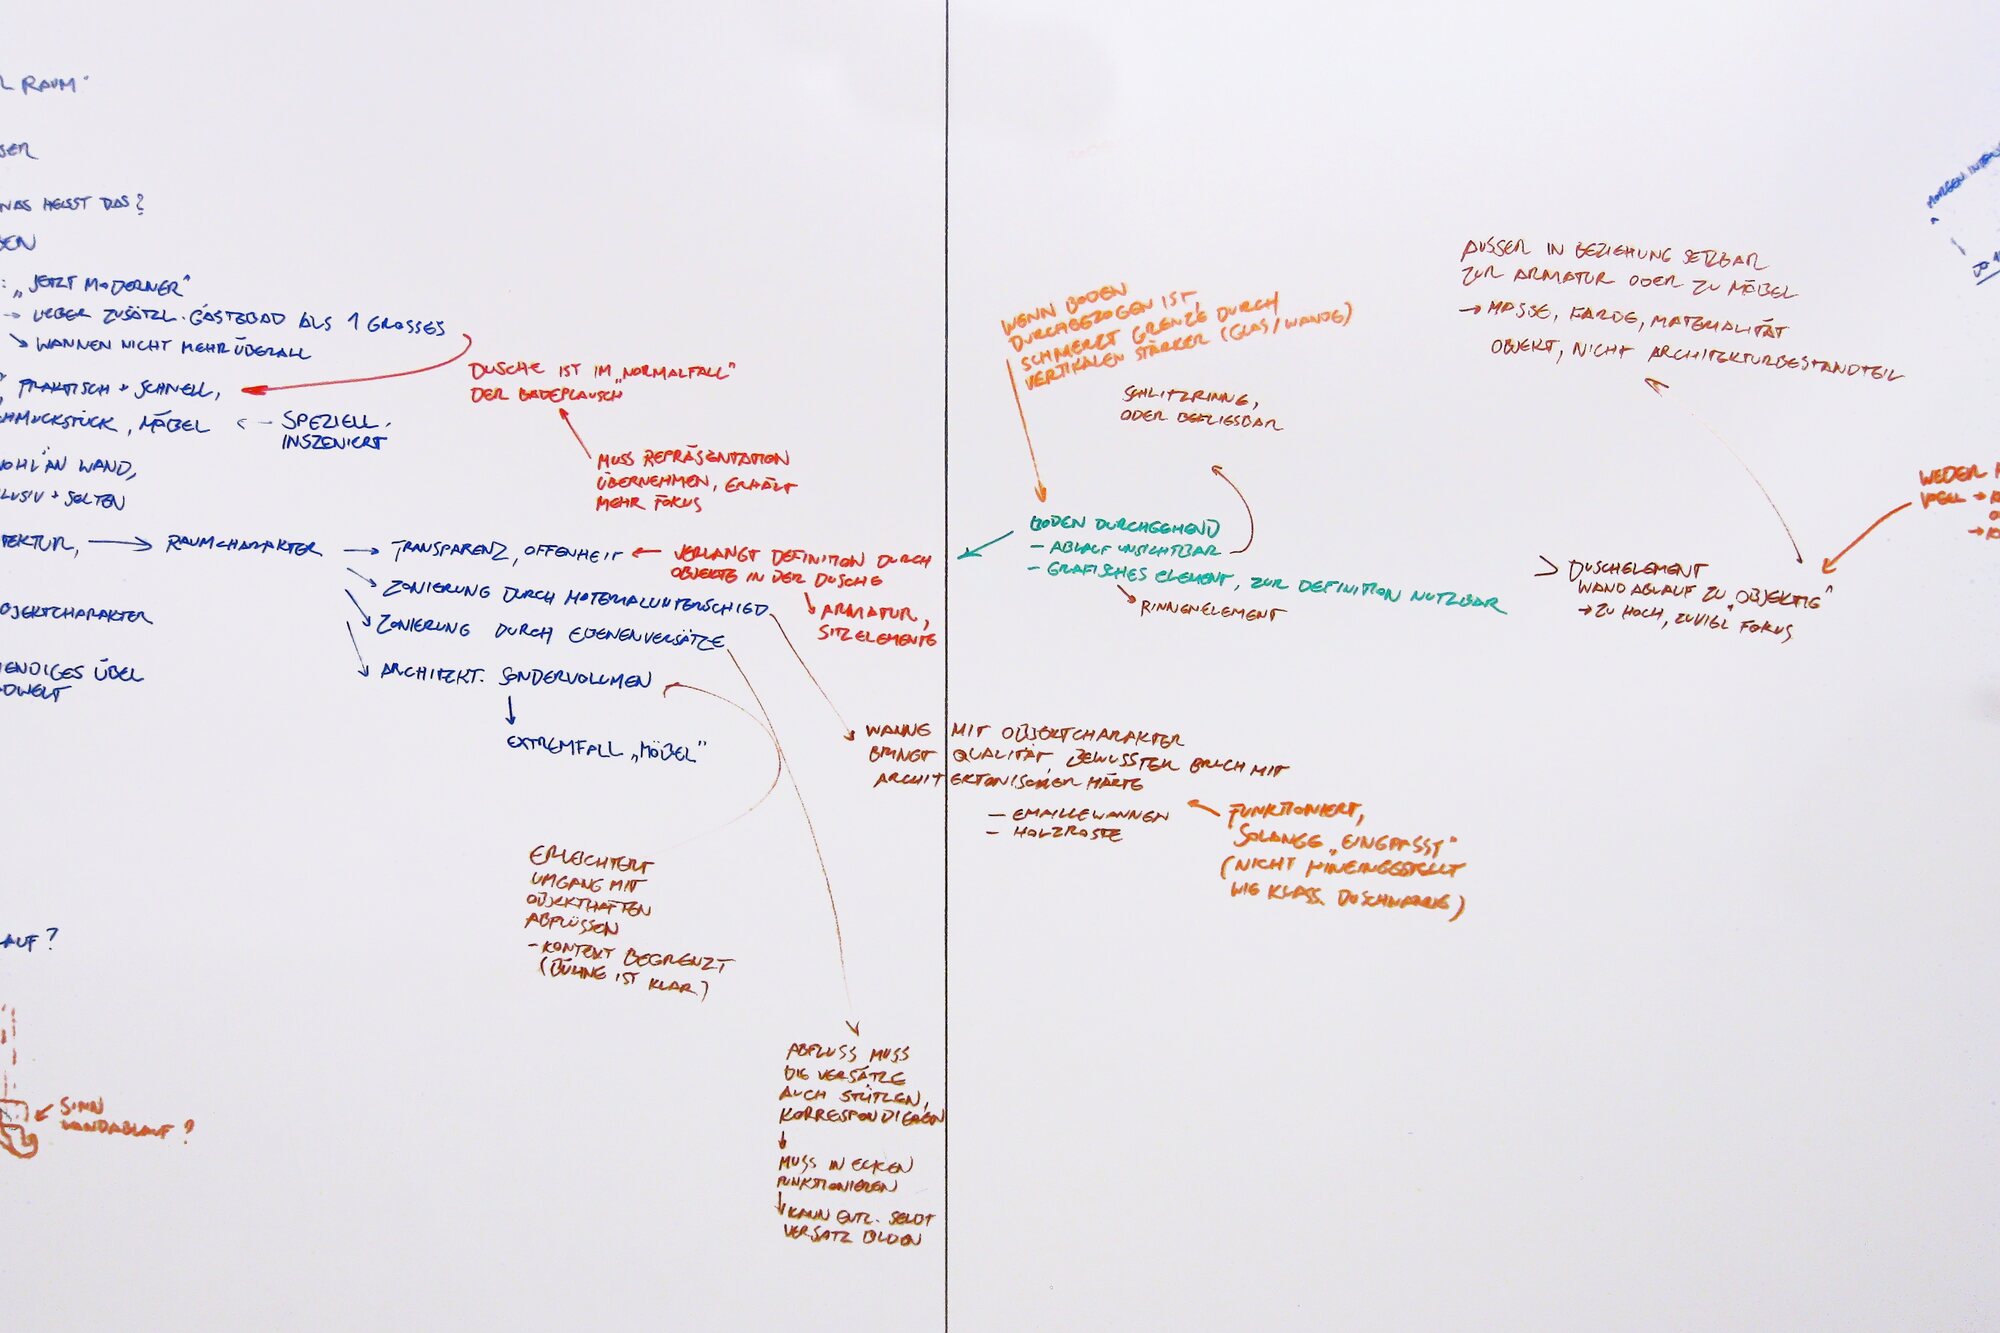 RAUM"
WAS HEISST DAS?
: „JETZT MODERNER"
→ UEBER ZUSÄTZL. GÄSTEBAD ALS 1 GROSSES
↘ WANNEN NICHT MEHR ÜBERALL
PRAKTISCH + SCHNELL,
, MÖBEL ← SPEZIELL.
INSZENIERT
AN WAND,
+ SELTEN
→ RAUMCHARAKTER
OBJEKTCHARAKTER
ÜBEL
AUF?
→ TRANSPARENZ, OFFENHEIT
↘ ZONIERUNG DURCH MATERIALUNTERSCHIED
↘ ZONIERUNG DURCH EBENENVERSÄTZE
↘ ARCHITEKT. SONDERVOLUMEN
↓
EXTREMFALL „MÖBEL"
DUSCHE IST IM „NORMALFALL"
DER BADEPLAUSCH
MUSS REPRÄSENTATION
ÜBERNEHMEN, ERHÄLT
MEHR FOKUS
← VERLANGT DEFINITION DURCH
OBJEKTE IN DER DUSCHE
↘ ARMATUR,
SITZELEMENTE
ERLEICHTERT
UMGANG MIT
OBJEKTHAFTEN
ABFLÜSSEN
- KONTEXT BEGRENZT
(BÜHNE IST KLAR)
ABFLUSS MUSS
DIE VERSÄTZE
AUCH STÜTZEN,
KORRESPONDIEREN
↓
MUSS IN ECKEN
FUNKTIONIEREN
↓
KANN EVTL. SELBST
VERSATZ BILDEN
← SINN
WANDABLAUF?
WENN BODEN
DURCHGEZOGEN IST,
SCHMERZT GRENZE DURCH
VERTIKALEN STÄRKER (GLAS/WÄNDE)
SCHLITZRINNE,
ODER BEFLIESBAR
BODEN DURCHGEHEND
- ABLAUF UNSICHTBAR
- GRAFISCHES ELEMENT, ZUR DEFINITION NUTZBAR
↘ RINNENELEMENT
WANNE MIT OBJEKTCHARAKTER
BRINGT QUALITÄT, BEWUSSTER BRUCH MIT
ARCHITEKTONISCHER HÄRTE
- EMAILLEWANNEN
- HOLZROSTE
FUNKTIONIERT,
SOLANGE „EINGEPASST"
(NICHT HINEINGESTELLT
WIE KLASS. DUSCHWANNE)
AUSSER IN BEZIEHUNG SETZBAR
ZUR ARMATUR ODER ZU MÖBEL
→ MASSE, FARBE, MATERIALITÄT
OBJEKT, NICHT ARCHITEKTURBESTANDTEIL
> DUSCHELEMENT
WANDABLAUF ZU „OBJEKTIG"
→ ZU HOCH, ZUVIEL FOKUS
WEDER
MORGEN